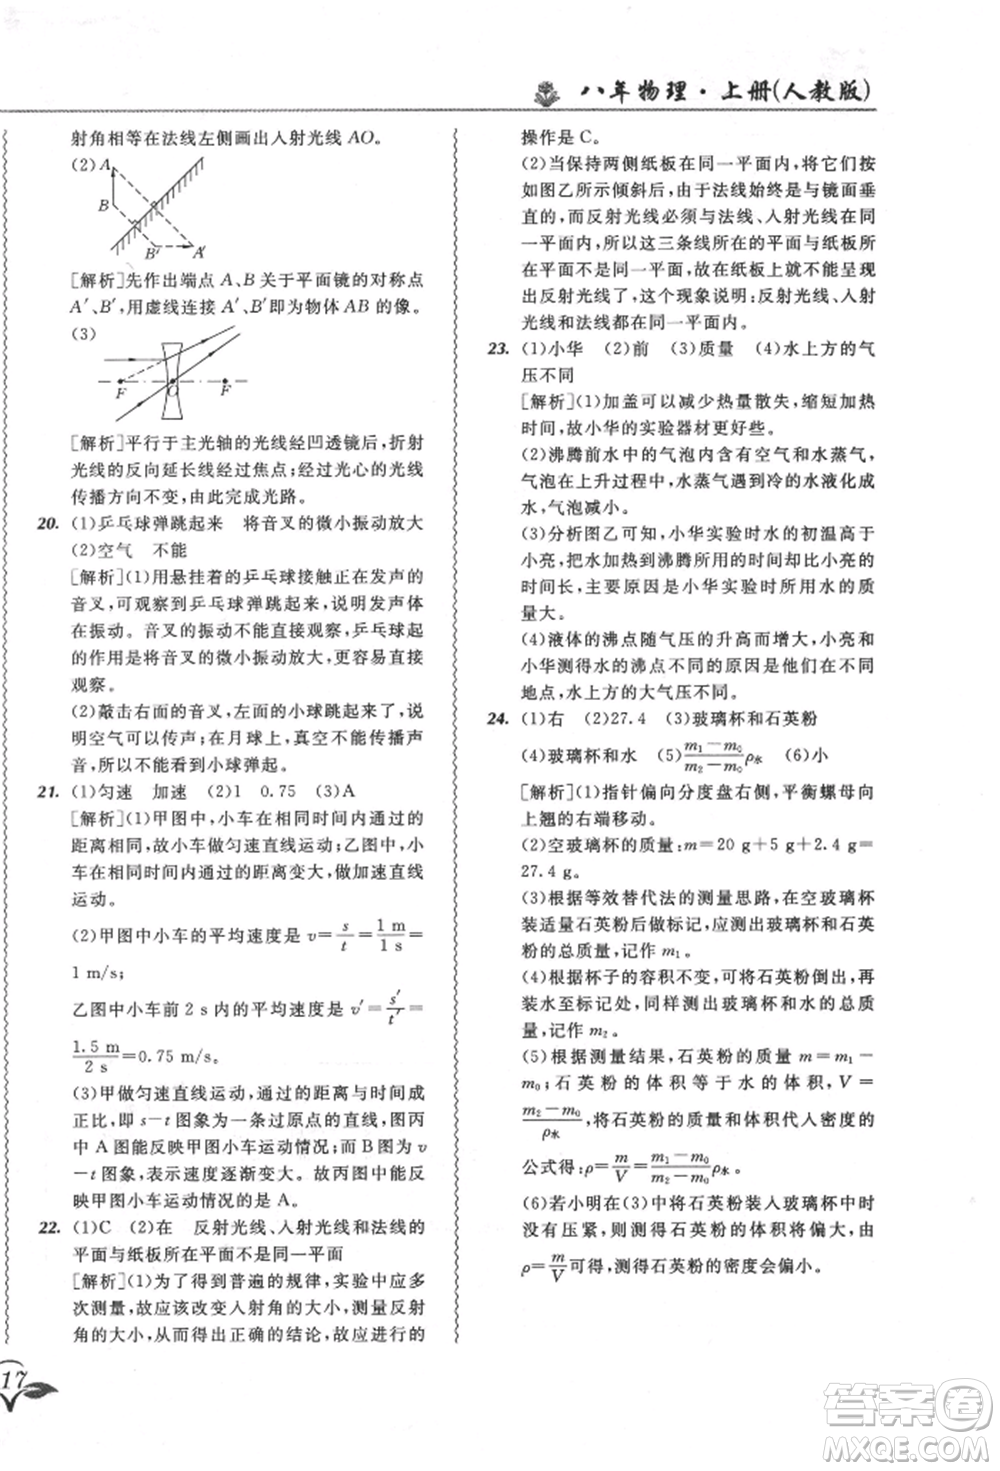 八年物理·上册(人教版)
射角相等在法线左侧画出入射光线 AO。
(2)
A
B
B′
A′
[解析]先作出端点 A、B 关于平面镜的对称点
A′、B′,用虚线连接 A′、B′即为物体 AB 的像。
(3)
F
O
F
[解析]平行于主光轴的光线经凹透镜后,折射
光线的反向延长线经过焦点;经过光心的光线
传播方向不变,由此完成光路。
20. (1)乒乓球弹跳起来　将音叉的微小振动放大
(2)空气　不能
[解析](1)用悬挂着的乒乓球接触正在发声的
音叉,可观察到乒乓球弹跳起来,说明音叉
在振动。音叉的振动不能直接观察,乒乓球起
的作用是将音叉的微小振动放大,以便直接
观察。
(2)敲击右面的音叉,左面的小球跳起来,说
明空气可以传声;在月球上,真空不能传播声
音,所以不能看到小球弹起。
21. (1)匀速　加速　(2)1　0.75　(3)A
[解析](1)甲图中,小车在相同时间内通过的
距离相同,故小车做匀速直线运动;乙图中,小
车在相同时间内通过的距离变大,故做加速直线
运动。
(2)甲图中小车的平均速度是 v=s/t=1 m/1 s=
1 m/s;
乙图中小车前 2 s 内的平均速度是 v′=s′/t′=
1.5 m/2 s=0.75 m/s。
(3)甲做匀速直线运动,运动的距离与时间成
正比,即 s－t 图象为一条过原点的直线,故丙
图中 A 图能反映甲图小车运动情况;而 B 图 v
－t 图象,表示速度逐渐增大。故丙图中能反
映甲图小车运动情况的是 A。
22. (1)C　(2)在　反射光线、入射光线和法线的
平面与纸板所在平面不是同一平面
[解析](1)为了得到普遍的规律,实验中应多
次测量,故应该改变入射角的大小,测量反射
角的大小,从而得出正确的结论,故应进行的
操作是 C。
(2)当保持两侧纸板在同一平面内,将它们按
如图乙所示倾斜后,由于法线始终是与镜面垂
直的,而反射光线必须与法线、入射光线在同
一平面内,所以这三条线所在的平面与纸板所
在的平面不重合,故在纸板上不能呈现出
反射光的径迹。此现象说明:反射光线、入射
光线和法线都在同一平面内。
23. (1)小华　(2)前　(3)质量　(4)水上方的气
压不同
[解析](1)加盖可以减少热量散失,缩短加热
时间,故小华的实验器材更好些。
(2)沸腾前水中的气泡内含有空气和水蒸气,
气泡在上升过程中,水蒸气遇冷的水液化成水,
气泡减小。
(3)分析图乙可知,小华实验时水的初温高于
小亮,把水加热到沸腾的时间却比小亮的
时间长,主要原因是小华实验时所用水的质
量大。
(4)液体的沸点随气压的升高而增大,小亮和
小华测得水的沸点不同的原因是他们在不同
地点,水上方的大气压不同。
24. (1)右　(2)27.4　(3)玻璃杯和石英粉
(4)玻璃杯和水　(5)(m₁－m₀)/(m₂－m₀)ρ水　(6)小
[解析](1)指针偏向分度盘右侧,平衡螺母向
上翘的右端移动。
(2)空玻璃杯的质量:m=20 g+5 g+2.4 g=
27.4 g。
(3)根据等效替代法的测量思路,在空玻璃杯
装适量石英粉做标记,应测出玻璃杯和石英
粉的总质量,记作 m₁。
(4)根据杯子的容积不变,可将石英粉倒出,再
装水至标记处,同样测出玻璃杯和水的总质
量,记作 m₂。
(5)根据测量结果,石英粉的质量 m=m₁－
m₀;石英粉的体积等于水的体积,V=
(m₂－m₀)/ρ水,将石英粉的质量和体积代入密度的
公式得:ρ=m/V=(m₁－m₀)/(m₂－m₀)ρ水。
(6)若小明在(3)中将石英粉装入玻璃杯中时
没有压紧,则测量出石英粉的体积将偏大,由
ρ=m/V可得,测得石英粉的密度会偏小。
17
答案圈
MXQE.COM